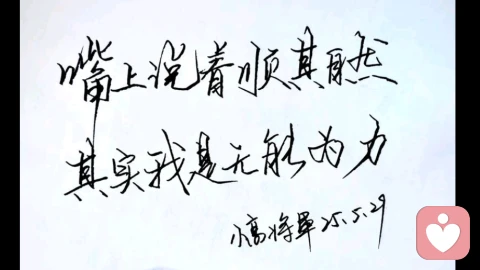 嘴上说着顺其自然
其实我是无能为力
小高将军 25.5.29